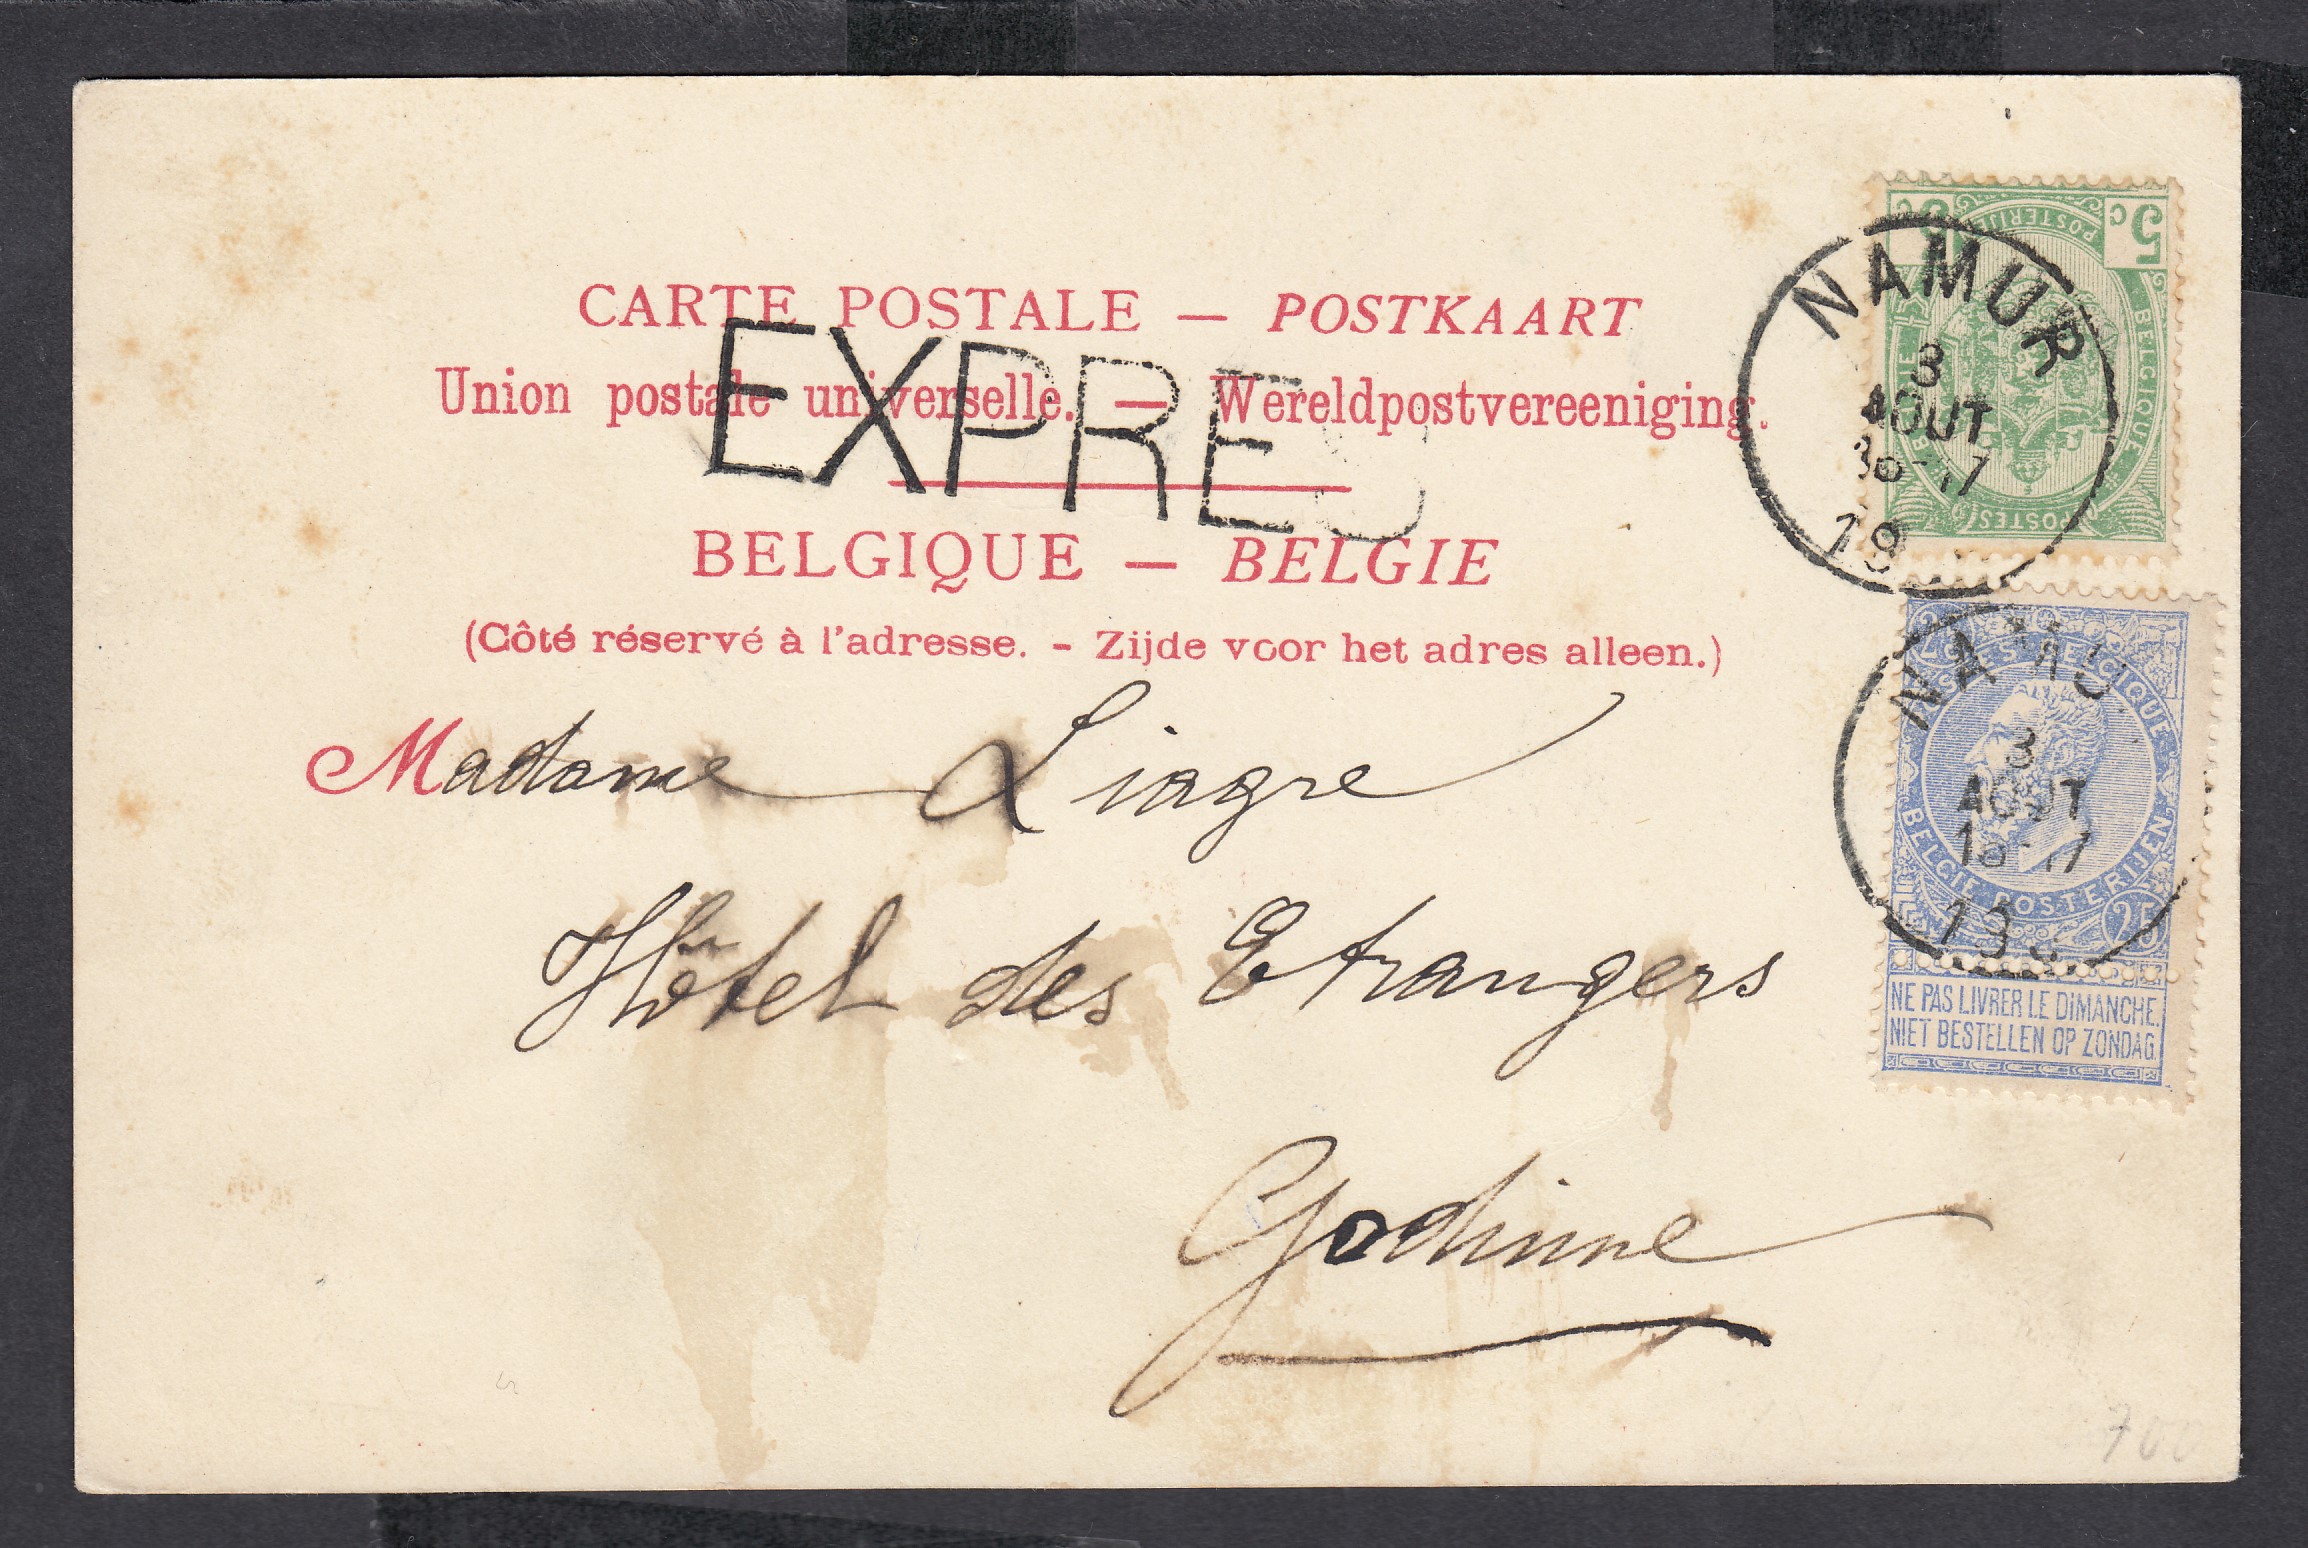 CARTE POSTALE — POSTKAART
EXPRES
Union postale universelle. — Wereldpostvereeniging.
BELGIQUE — BELGIE
(Côté réservé à l'adresse. - Zijde voor het adres alleen.)
Madame Liagre
Hôtel des Etrangers
Godinne
5 c
POSTERIJEN
BELGIQUE
POSTES
NAMUR
3
AOUT
BELGIQUE
BELGIE POSTERIJEN
25
NAMU
3
AOUT
NE PAS LIVRER LE DIMANCHE.
NIET BESTELLEN OP ZONDAG.
700